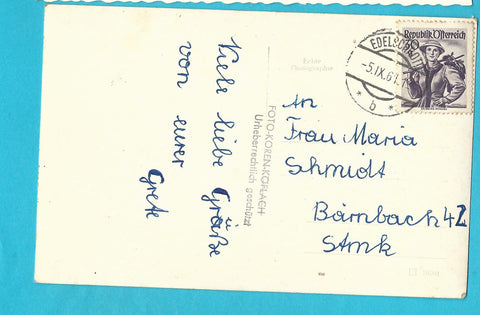 Viele liebe Grüße
von eurer
Grete
FOTO-KOREN-KÖFLACH
Urheberrechtlich geschützt
Echte
Photographie
EDELSCHROTT
-5.IX.61
* b *
Republik Österreich
An
Frau Maria
Schmidt
Bärnbach 42
Stmk